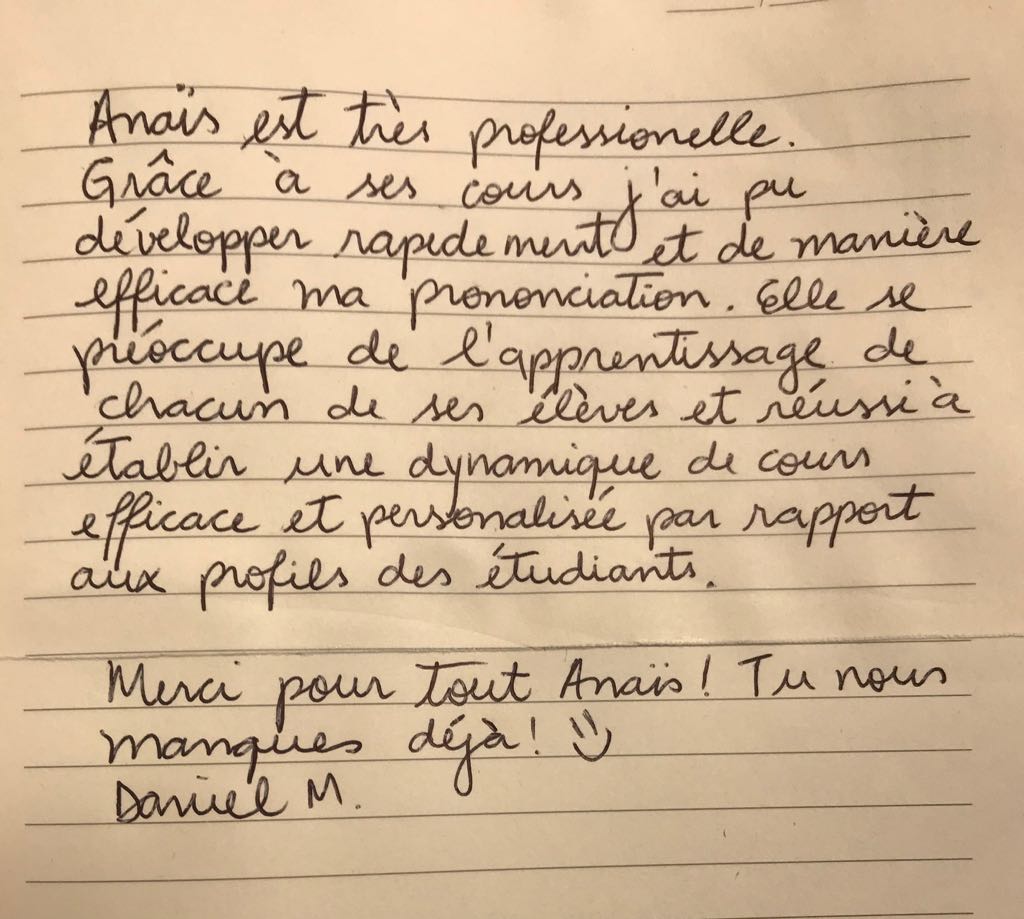 Anaïs est très professionelle.
Grâce à ses cours j'ai pu
développer rapidement et de manière
efficace ma prononciation. Elle se
préoccupe de l'apprentissage de
chacun de ses élèves et réussi à
établir une dynamique de cours
efficace et personalisée par rapport
aux profils des étudiants.
Merci pour tout Anaïs! Tu nous
manques déjà! :)
Daniel M.